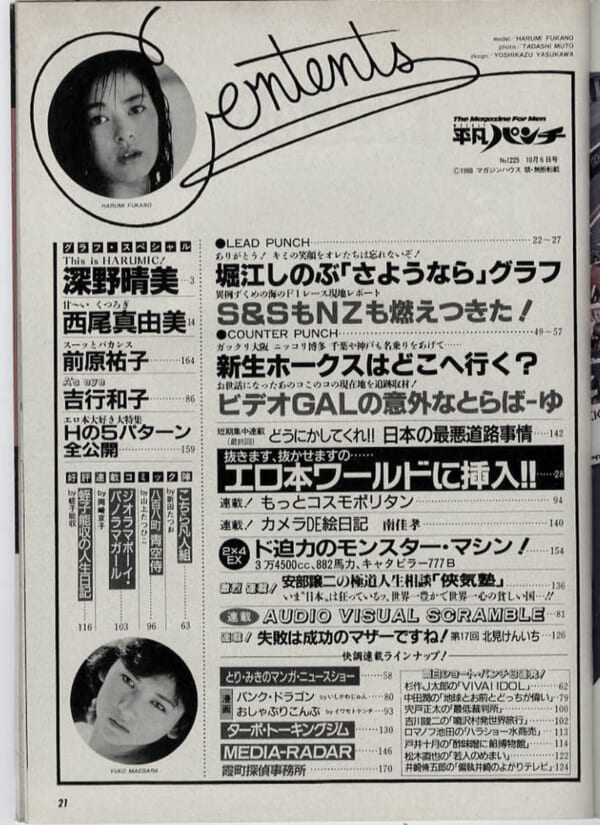 model／HARUMI FUKANO
photo／TADASHI MUTO
design／YOSHIKAZU YASUKAWA
Contents
HARUMI FUKANO
The Magazine For Men
WEEKLY
平凡パンチ
No.1225 10月6日号
©1988 マガジンハウス 禁・無断転載
グラフ・スペシャル
This is HARUMIC!
深野晴美…3
甘〜い くつろぎ
西尾真由美 14
スーッとバカンス
前原祐子……164
A's eye
吉行和子……86
エロ本大好き大特集
Hの5パターン
全公開……159
好評連載コミック陣
こちら凡人組
by新田たつお
63
八百八町青空侍
by山上たつひこ
96
ジオラマボーイ・パノラマガール
by岡崎京子
103
蛭子能収の人生日記
by蛭子能収
116
YUKO MAEBARA
●LEAD PUNCH……22〜27
ありがとう！ キミの笑顔をオレたちは忘れないぞ！
堀江しのぶ「さようなら」グラフ
異例ずくめの海のF1レース現地レポート
S&SもNZも燃えつきた！
●COUNTER PUNCH……49〜57
ガックリ大阪 ニッコリ博多 千葉や神戸も名乗りをあげて……
新生ホークスはどこへ行く？
お世話になったあのコこのコの現在地を追跡取材！
ビデオGALの意外なとらばーゆ
短期集中連載（最終回） どうにかしてくれ!! 日本の最悪道路事情…142
抜きます、抜かせますの…
エロ本ワールドに挿入!!…28
連載！ もっとコスモポリタン……94
連載！ カメラDE絵日記 南佳孝……140
2×4 EX ド迫力のモンスター・マシン！…154
3万4500cc、882馬力、キャタピラー777B
激烈連載！ 安部譲二の極道人生相談「俠気塾」……136
いま“日本”は狂っているッ、世界一豊かで世界一心の貧しい国…!!
連載 AUDIO VISUAL SCRAMBLE…81
連載！ 失敗は成功のマザーですね！ 第17回 北見けんいち…126
快調連載ラインナップ！
とり・みきのマンガ・ニュースショー……58
漫画 パンク・ドラゴン byいしかわじゅん……80
おしゃぶりこんぶ byイワモトケンチ……93
ターボ・トーキングジム……130
MEDIA-RADAR……146
霞町探偵事務所……170
面白ショート・パンチ8連発！
杉作J太郎の「VIVA! IDOL」……62
中田潤の「地球とお前とどっちが偉い」…79
宍戸正太の「最低裁判所」……100
吉川錠二の「鳴沢村発世界旅行」……102
ロマノフ池田の「ハラショー水商売」…113
戸井十月の「酢味噌に船博物館」…114
松木直也の「若人のめまい」……122
井崎脩五郎の「偏執井崎のよかりテレビ」…124
21